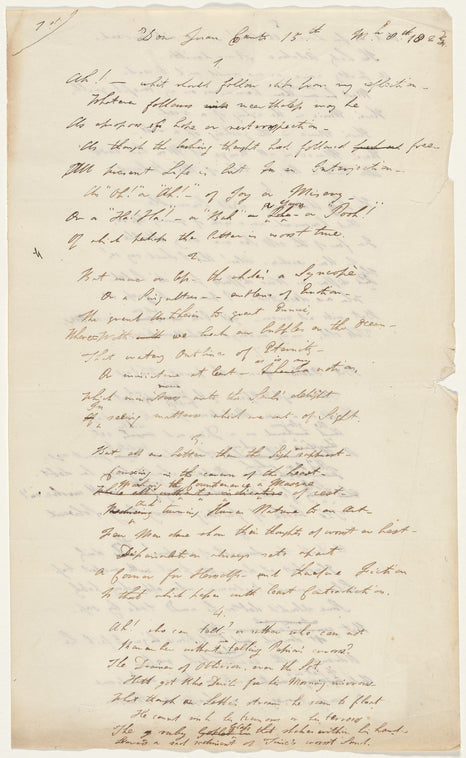 Don Juan Canto 15th Mch 8th 1823
1
Ah! — what should follow slips from my reflection —
Whatever follows ne'ertheless may be
As apropos of hope or retrospection —
As though the lurking thought had followed free —
All present Life is but an Interjection —
An "Oh!" or "Ah!" — of Joy or Misery —
Or a "Ha! Ha!" — or "Bah" — a Yawn — or "Pooh!"
Of which perhaps the latter is most true.
2
But more or less — the whole's a Syncopé
Or a Singultus — emblems of Emotion —
The grand Antithesis to great Ennui,
Wherewith we break our bubbles on the Ocean —
That watery Outline of Eternity —
Or miniature at least — as is my notion,
Which ministers unto the Soul's delight
In seeing matters which are out of Sight.
3
But all are better than the Sigh supprest
Corroding in the cavern of the heart
Making the Countenance a Masque of rest —
And turning Human Nature to an Art —
Few Men dare show their thoughts of worst or best —
Dissimulation always sets apart
A Corner for Herself — and therefore Fiction
Is that which passes with least Contradiction.
4
Ah! who can tell? or rather who can not
Remember without telling Passion's errors?
The Drainer of Oblivion, even the Sot
Hath got blue Devils for his Morning mirrors
What though on Lethe's stream he seem to float
He cannot sink his tremors or his terrors
The ruby Glass that shakes within his hand
Leaves a sad sediment of Time's worst Sand.